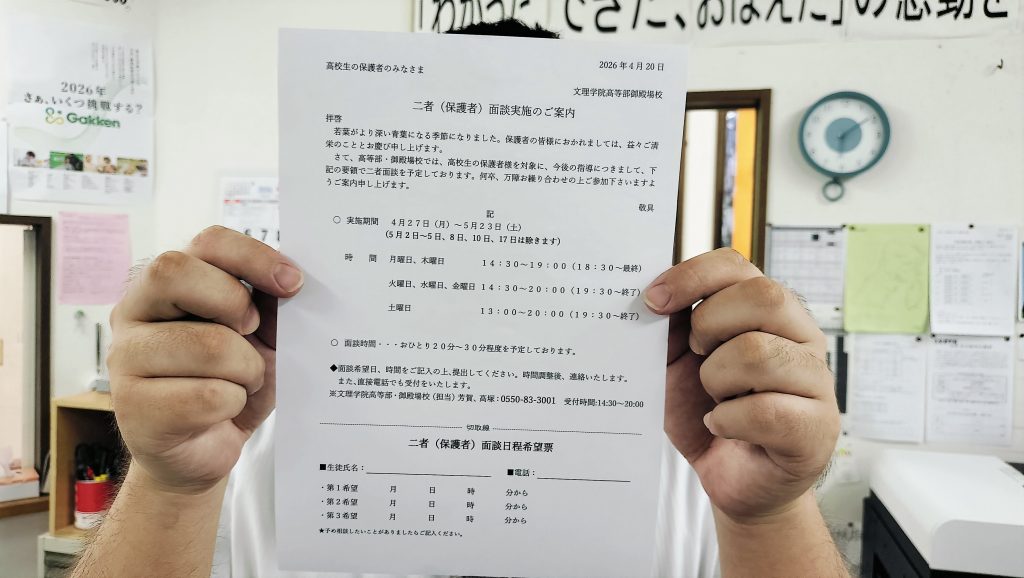 「わかった、できた、おぼえた」の感動を
2026年
さぁ、いくつ挑戦する?
Gakken
6 7 8
高校生の保護者のみなさま
2026年4月20日
文理学院高等部御殿場校
二者（保護者）面談実施のご案内
拝啓
若葉がより深い青葉になる季節になりました。保護者の皆様におかれましては、益々ご清
栄のこととお慶び申し上げます。
さて、高等部・御殿場校では、高校生の保護者様を対象に、今後の指導につきまして、下
記の要領で二者面談を予定しております。何卒、万障お繰り合わせの上ご参加下さいますよ
うご案内申し上げます。
敬具
記
○ 実施期間 4月27日（月）～5月23日（土）
（5月2日～5日、8日、10日、17日は除きます）
時 間 月曜日、木曜日 14：30～19：00（18：30～最終）
火曜日、水曜日、金曜日 14：30～20：00（19：30～終了）
土曜日 13：00～20：00（19：30～終了）
○ 面談時間・・・おひとり20分～30分程度を予定しております。
◆面談希望日、時間をご記入の上、提出してください。時間調整後、連絡いたします。
また、直接電話でも受付をいたします。
※文理学院高等部・御殿場校（担当）芳賀、髙塚：0550-83-3001 受付時間:14:30～20:00
切取線
二者（保護者）面談日程希望票
■生徒氏名： ■電話：
・第1希望 月 日 時 分から
・第2希望 月 日 時 分から
・第3希望 月 日 時 分から
★予め相談したいことがありましたらご記入ください。